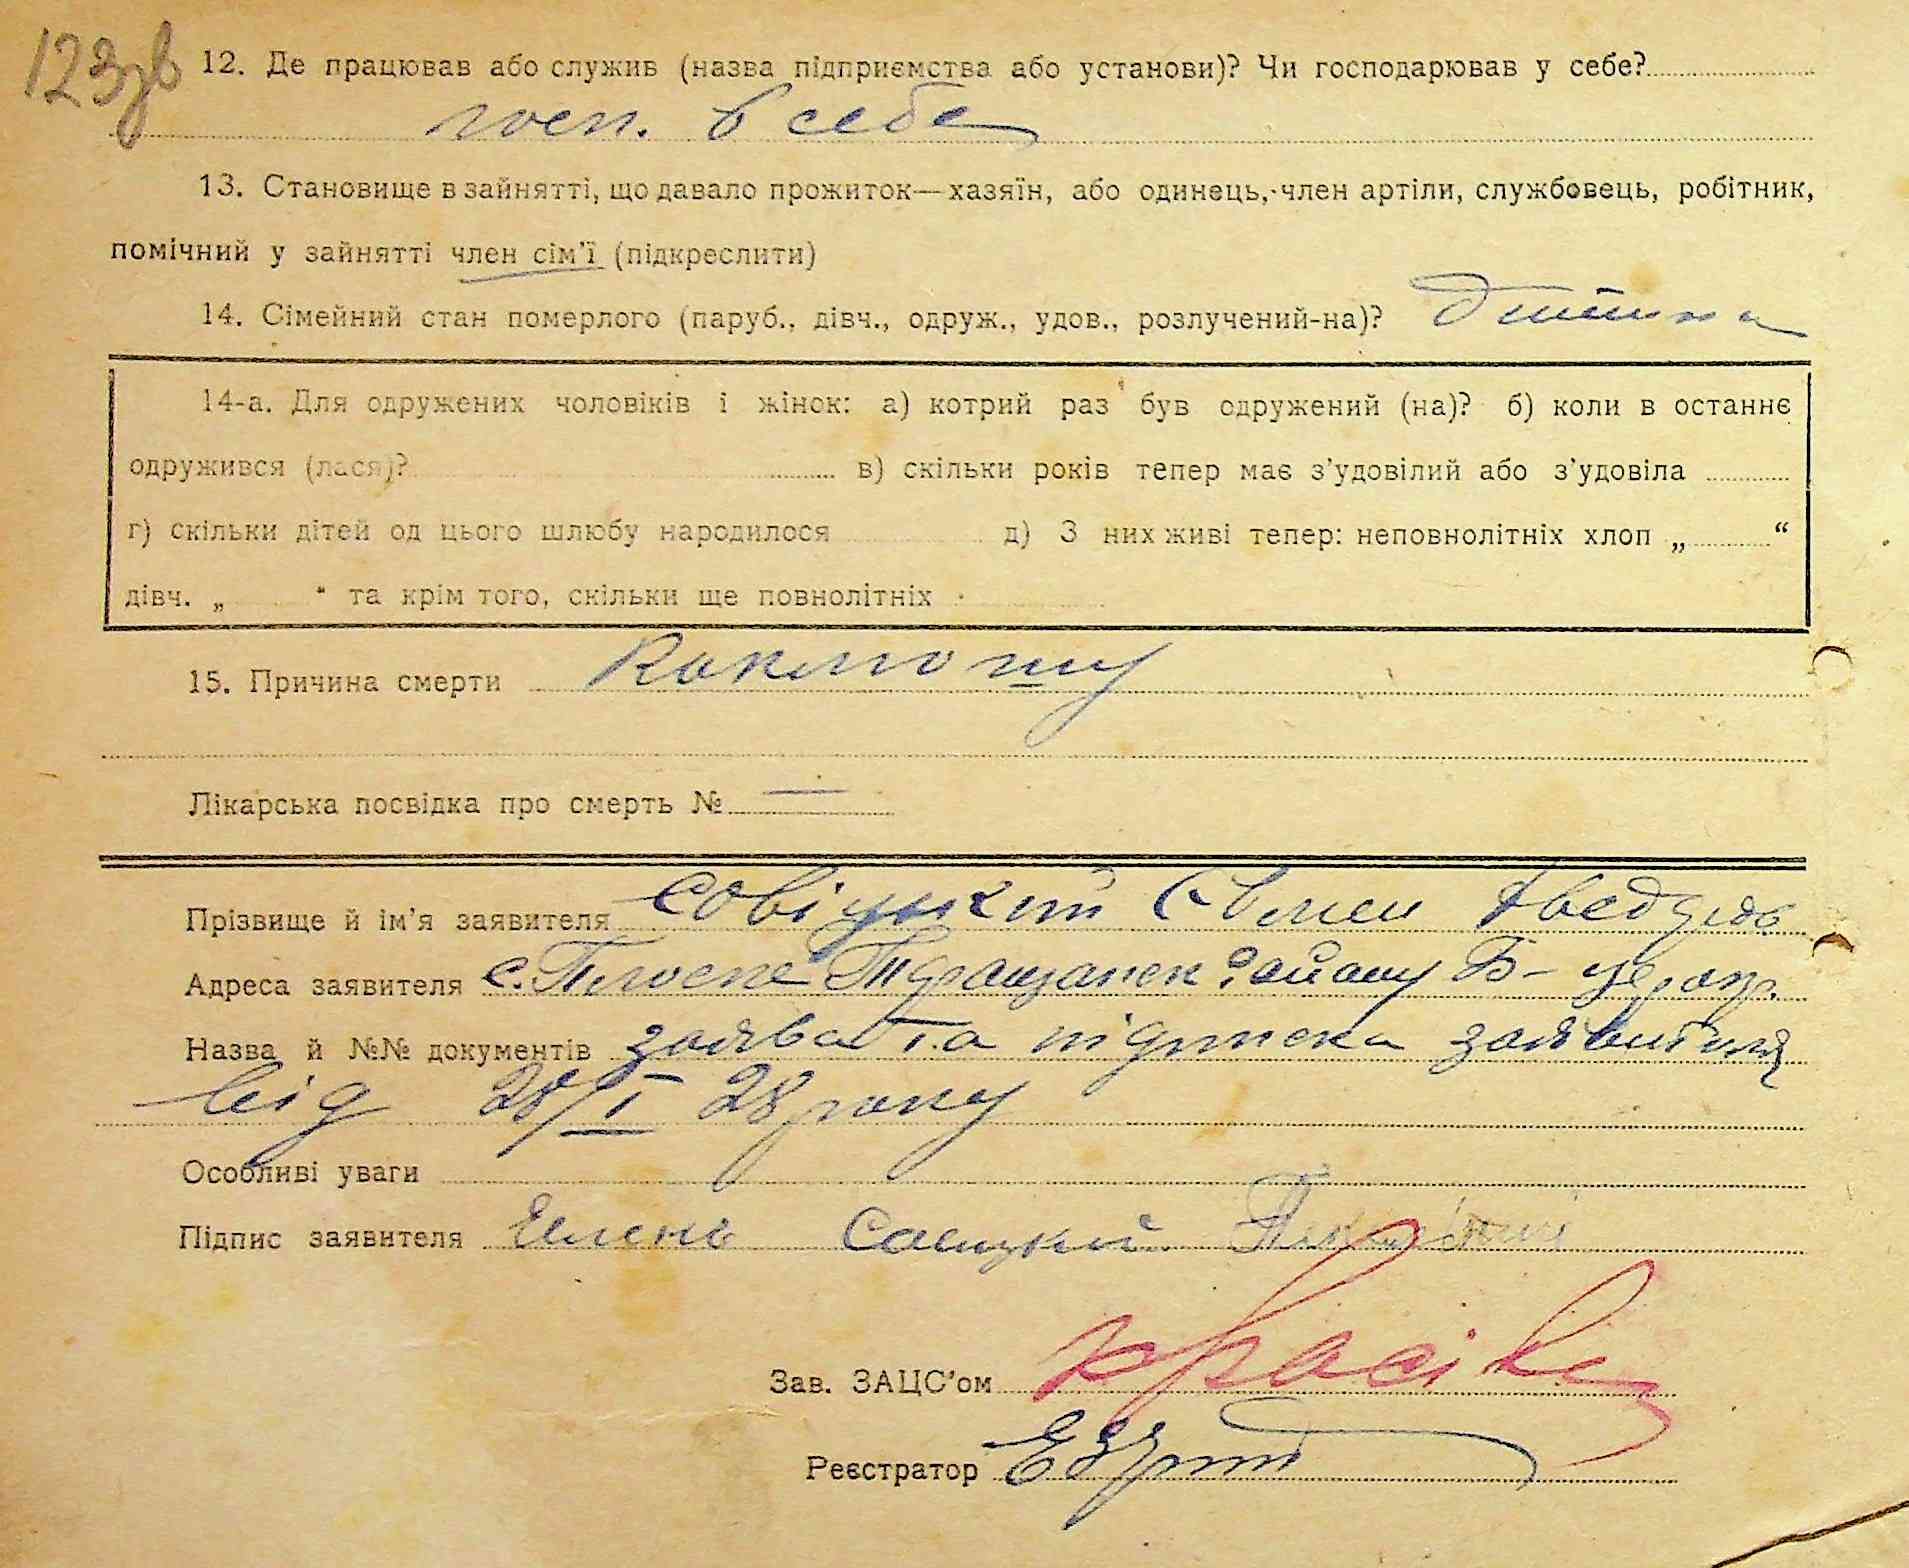 123зв
12. Де працював або служив (назва підприємства або установи)? Чи господарював у себе?
госп. в себе
13. Становище в зайнятті, що давало прожиток—хазяїн, або одинець, член артіли, службовець, робітник,
помічний у зайнятті член сім'ї (підкреслити)
14. Сімейний стан померлого (паруб., дівч., одруж., удов., розлучений-на)? Дитина
14-а. Для одружених чоловіків і жінок: а) котрий раз був одружений (на)? б) коли в останнє
одружився (лася)? в) скільки років тепер має з'удовілий або з'удовіла
г) скільки дітей од цього шлюбу народилося д) З них живі тепер: неповнолітніх хлоп „ “
дівч. „ “ та крім того, скільки ще повнолітніх
15. Причина смерти Коклюшу
Лікарська посвідка про смерть № —
Прізвище й ім'я заявителя
Адреса заявителя с. Плоске району Б-Церк.
Назва й №№ документів заява та підписка заявителя
від 28/I 28 року
Особливі уваги
Підпис заявителя
Зав. ЗАЦС'ом
Реєстратор